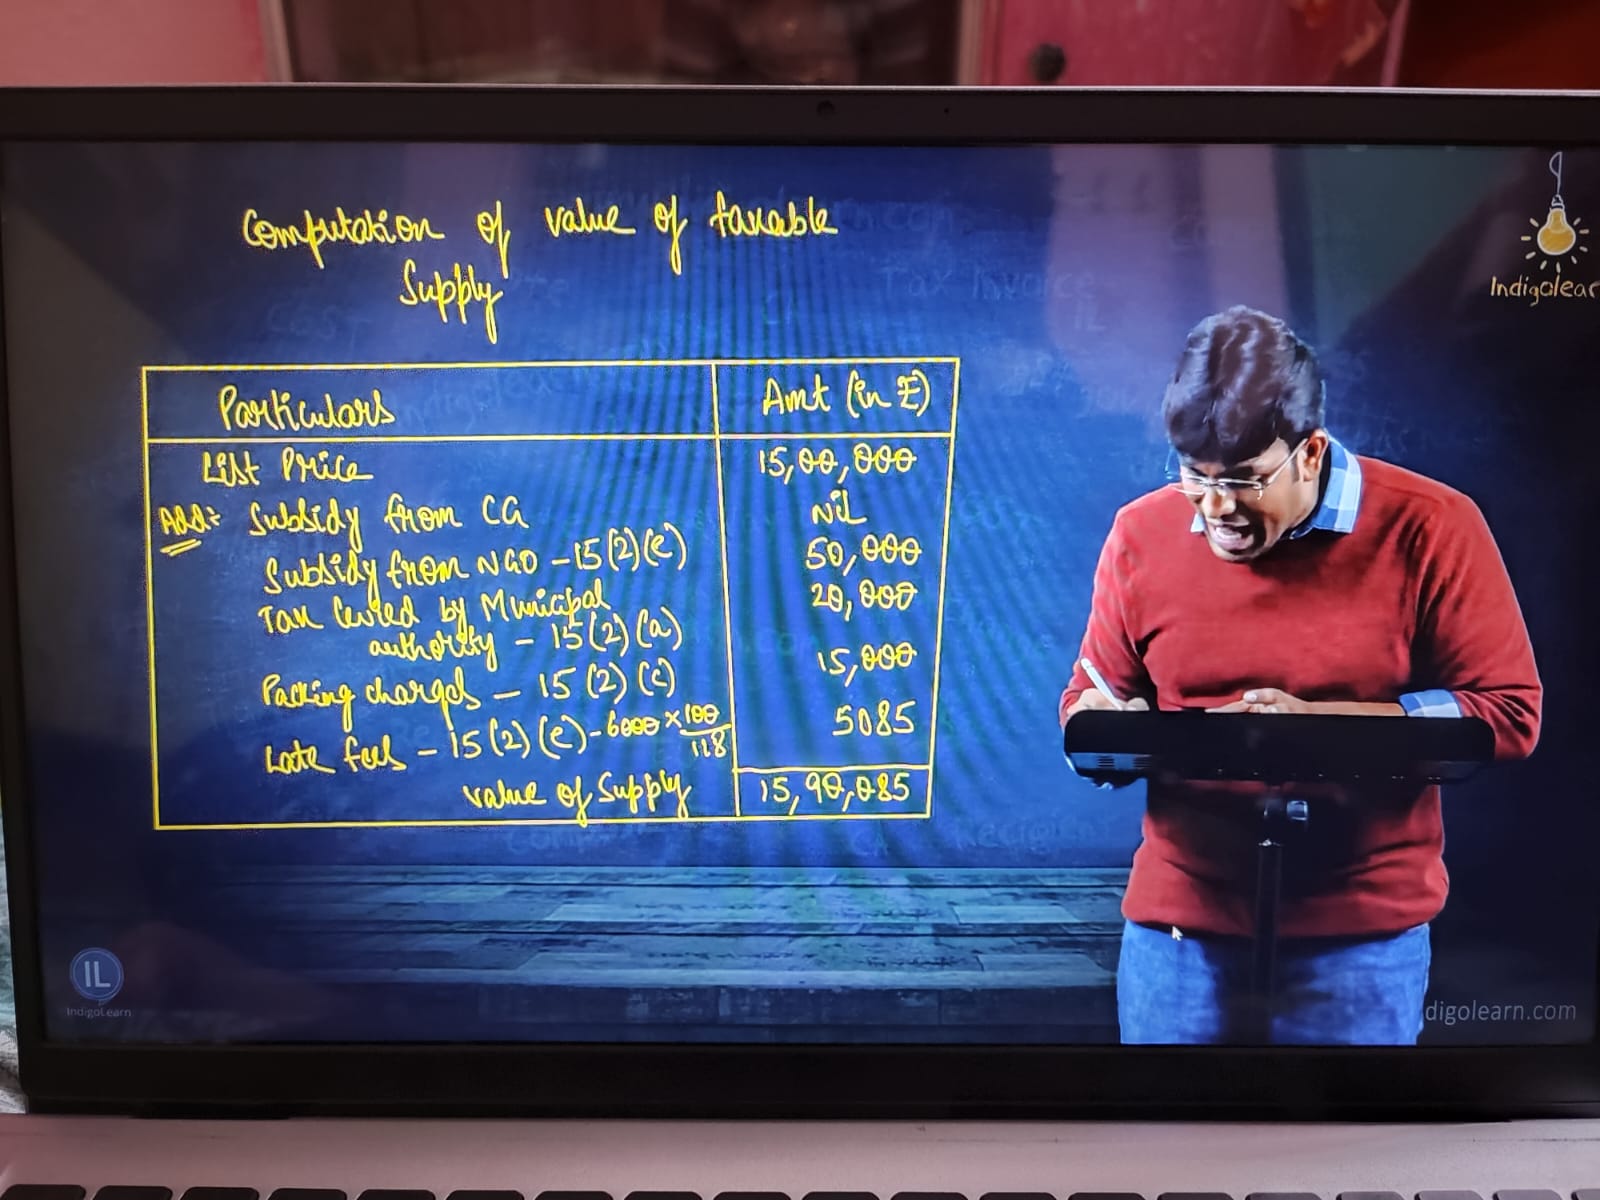 Computation of value of taxable
Supply
Indigolear
Particulars Amt (in ₹)
List Price 15,00,000
Add:- Subsidy from CG Nil
Subsidy from NGO - 15(2)(e) 50,000
Tax levied by Municipal 20,000
authority - 15(2)(a)
Packing charges - 15(2)(c) 15,000
Late fees - 15(2)(e) - 6000 × 100/118 5085
value of Supply 15,90,085
IL
IndigoLearn
digolearn.com